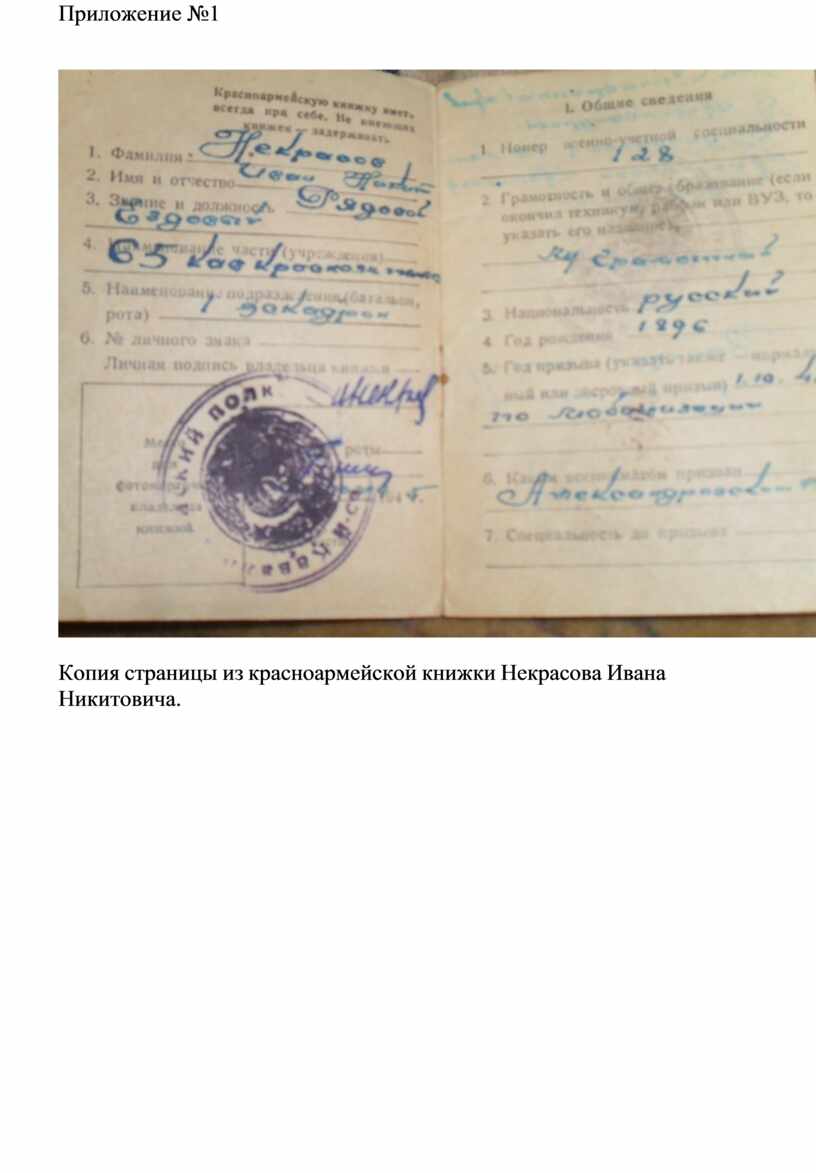 Приложение №1
Красноармейскую книжку иметь
всегда при себе. Не имеющих
книжек — задерживать
1. Фамилия Некрасов
2. Имя и отчество Иван Никит
3. Звание и должность Рядовой
Ездовый
4. Наименование части (учреждения)
63 кав краснознам
5. Наименование подразделения (батальон,
рота) 1 эскадрон
6. № личного знака
Личная подпись владельца книжки
роты
Место
для
фотокарточки
владельца
книжки
СКИЙ ПОЛК
I. Общие сведения
1. Номер военно-учетной специальности
128
2. Грамотность и общее образование (если
окончил техникум, рабфак или ВУЗ, то
указать его название)
3. Национальность русский
4 Год рождения 1896
5. Год призыва (указать также — нормаль
ный или досрочный призыв) 1.10.
по мобилизации
6. Каким военкоматом призван
Александровским
7. Специальность до призыва
Копия страницы из красноармейской книжки Некрасова Ивана
Никитовича.